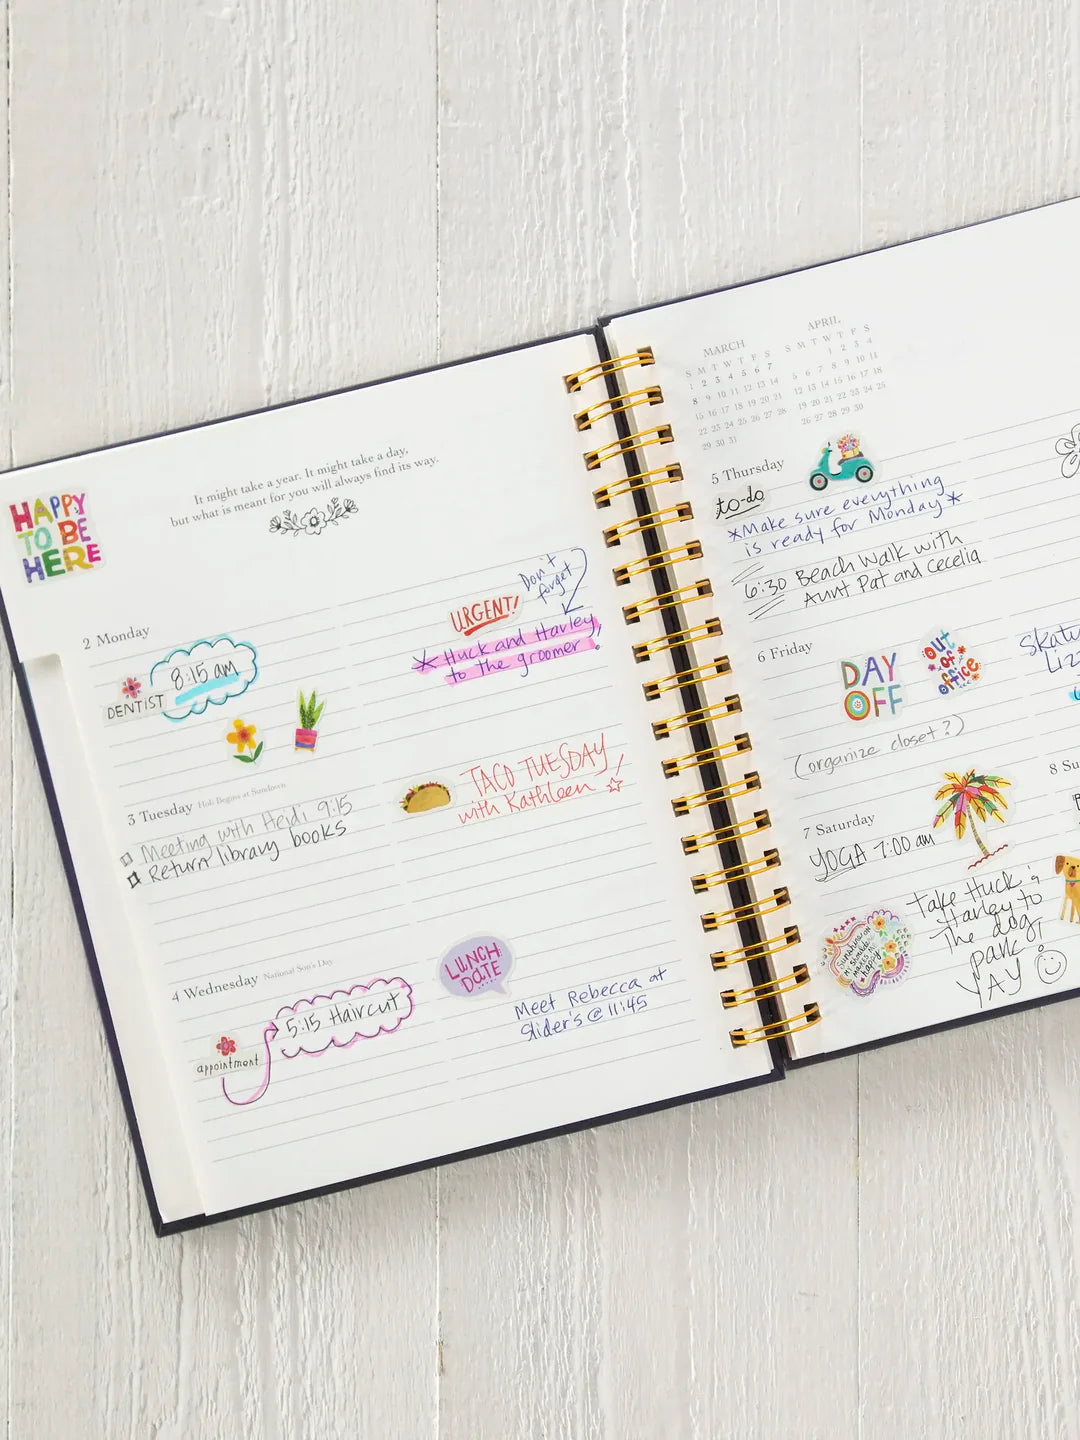 HAPPY
TO BE
HERE
It might take a year. It might take a day,
but what is meant for you will always find its way.
2 Monday
8:15 am
DENTIST
URGENT!
Don't
forget
* Huck and Harley
to the groomer!
3 Tuesday Holi Begins at Sundown
Meeting with Heidi 9:15
Return library books
TACO TUESDAY
with Kathleen
4 Wednesday National Son's Day
5:15 Haircut
appointment
LUNCH
DATE
Meet Rebecca at
Slider's @ 11:45
MARCH
S M T W T F S
1 2 3 4 5 6 7
8 9 10 11 12 13 14
15 16 17 18 19 20 21
22 23 24 25 26 27 28
29 30 31
APRIL
S M T W T F S
1 2 3 4
5 6 7 8 9 10 11
12 13 14 15 16 17 18
19 20 21 22 23 24 25
26 27 28 29 30
5 Thursday
to-do
*Make sure everything
is ready for Monday*
6:30 Beach Walk with
Aunt Pat and Cecelia
6 Friday
DAY
OFF
OUT
of
office
(organize closet?)
7 Saturday
YOGA 7:00 am
Sunshine on
my shoulders
makes me
happy
Take Huck &
Harley to
The dog
park!
YAY
8 Su